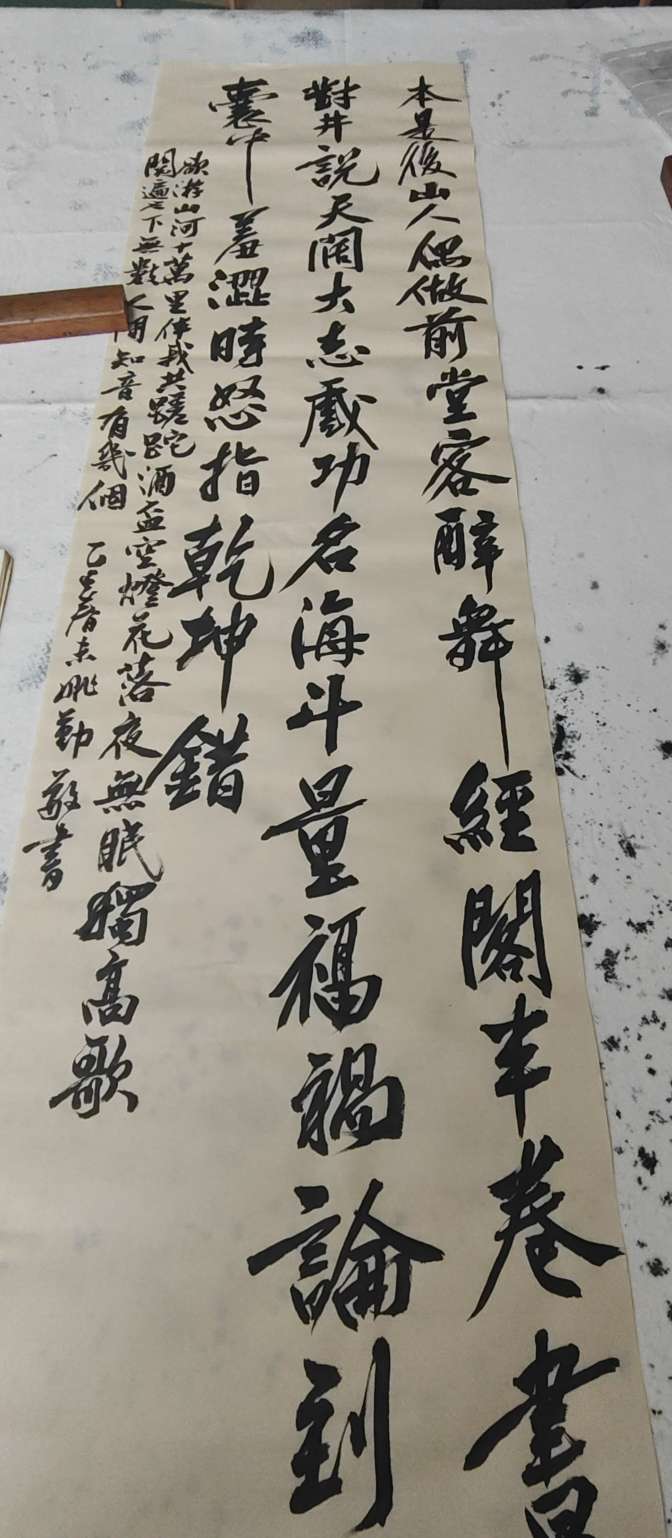 本是後山人偶做前堂客醉舞經閣半卷書
對井說天闊大志戲功名海斗量福禍論到
囊中羞澀時怒指乾坤錯
欲游山河十萬里伴我共蹉跎酒盃空燈花落夜無眠獨高歌
閱遍天下無數人問知音有幾個 乙巳春末姚勤敬書